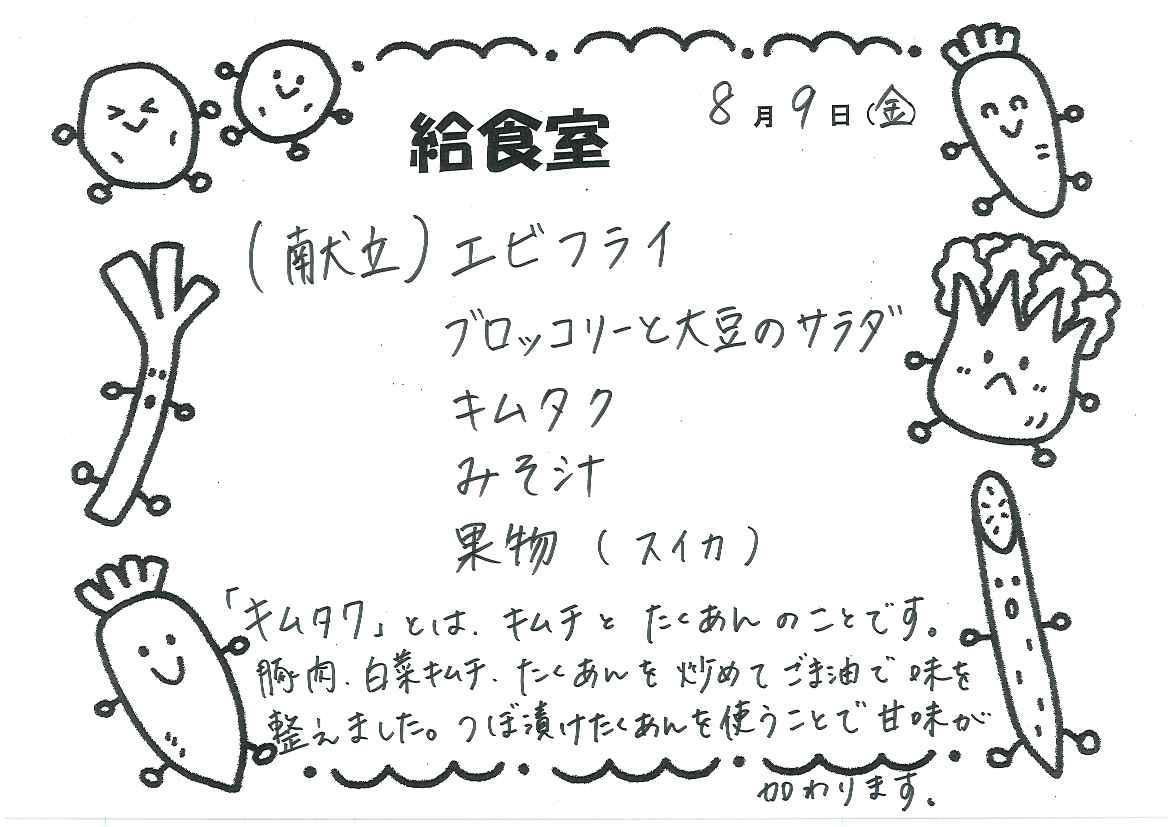 8月9日(金)
給食室
(献立)エビフライ
ブロッコリーと大豆のサラダ
キムタク
みそ汁
果物(スイカ)
「キムタク」とは、キムチと たくあんのことです。
豚肉、白菜キムチ、たくあんを炒めてごま油で味を
整えました。つぼ漬けたくあんを使うことで甘味が
加わります。